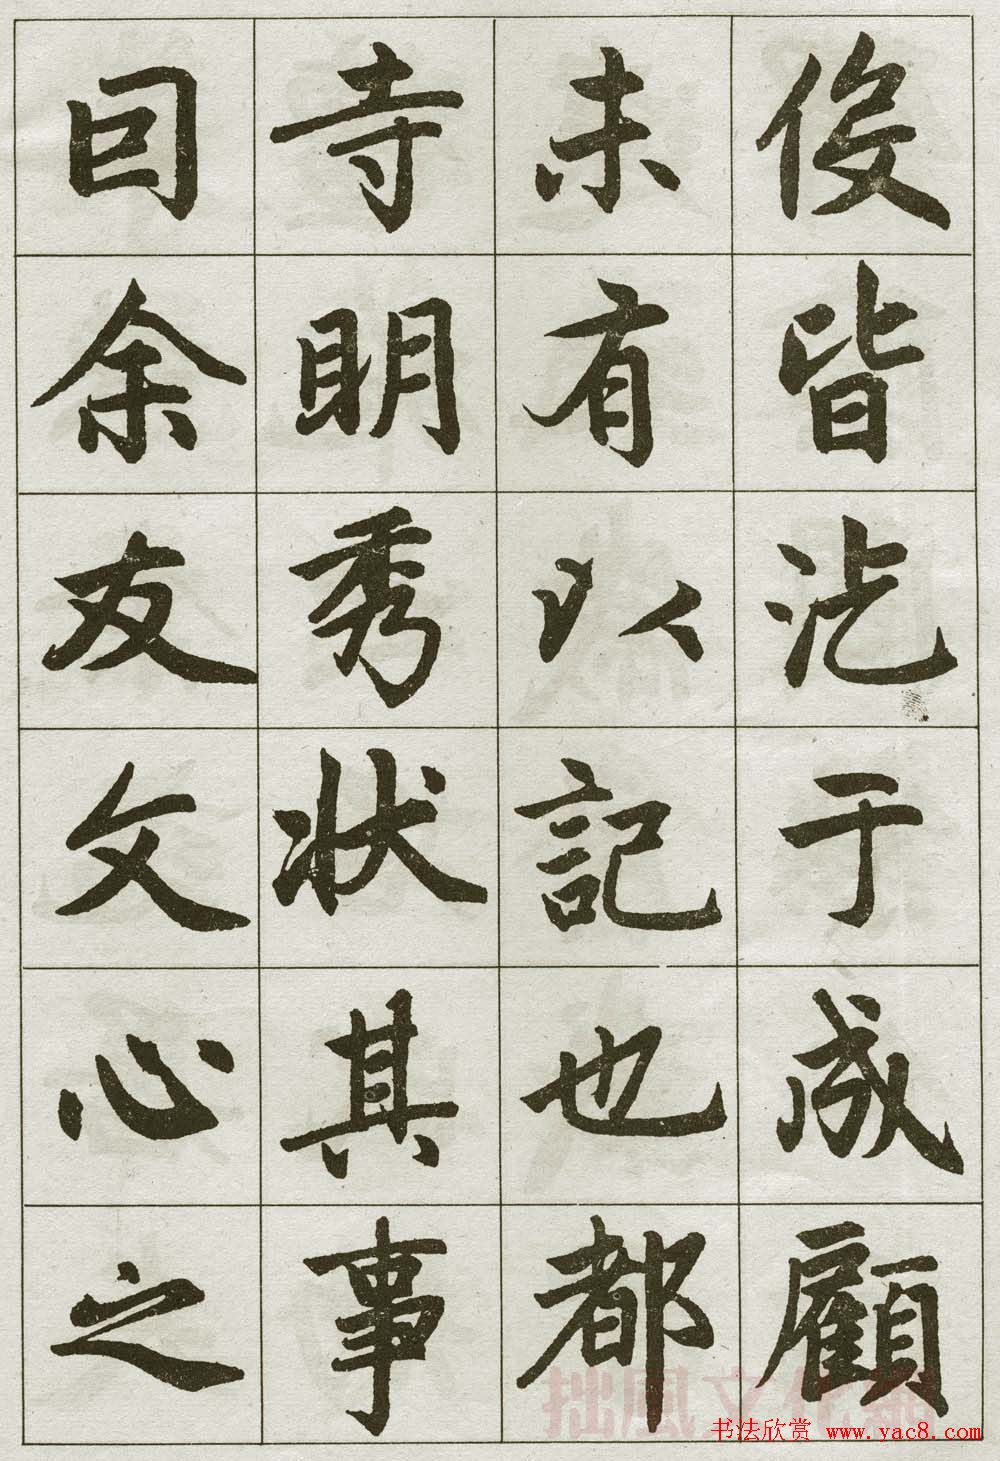 伇皆汔于成顧
未有以記也都
寺明秀狀其事
囙余友文心之
拙風文化網
书法欣赏 www.yac8.com